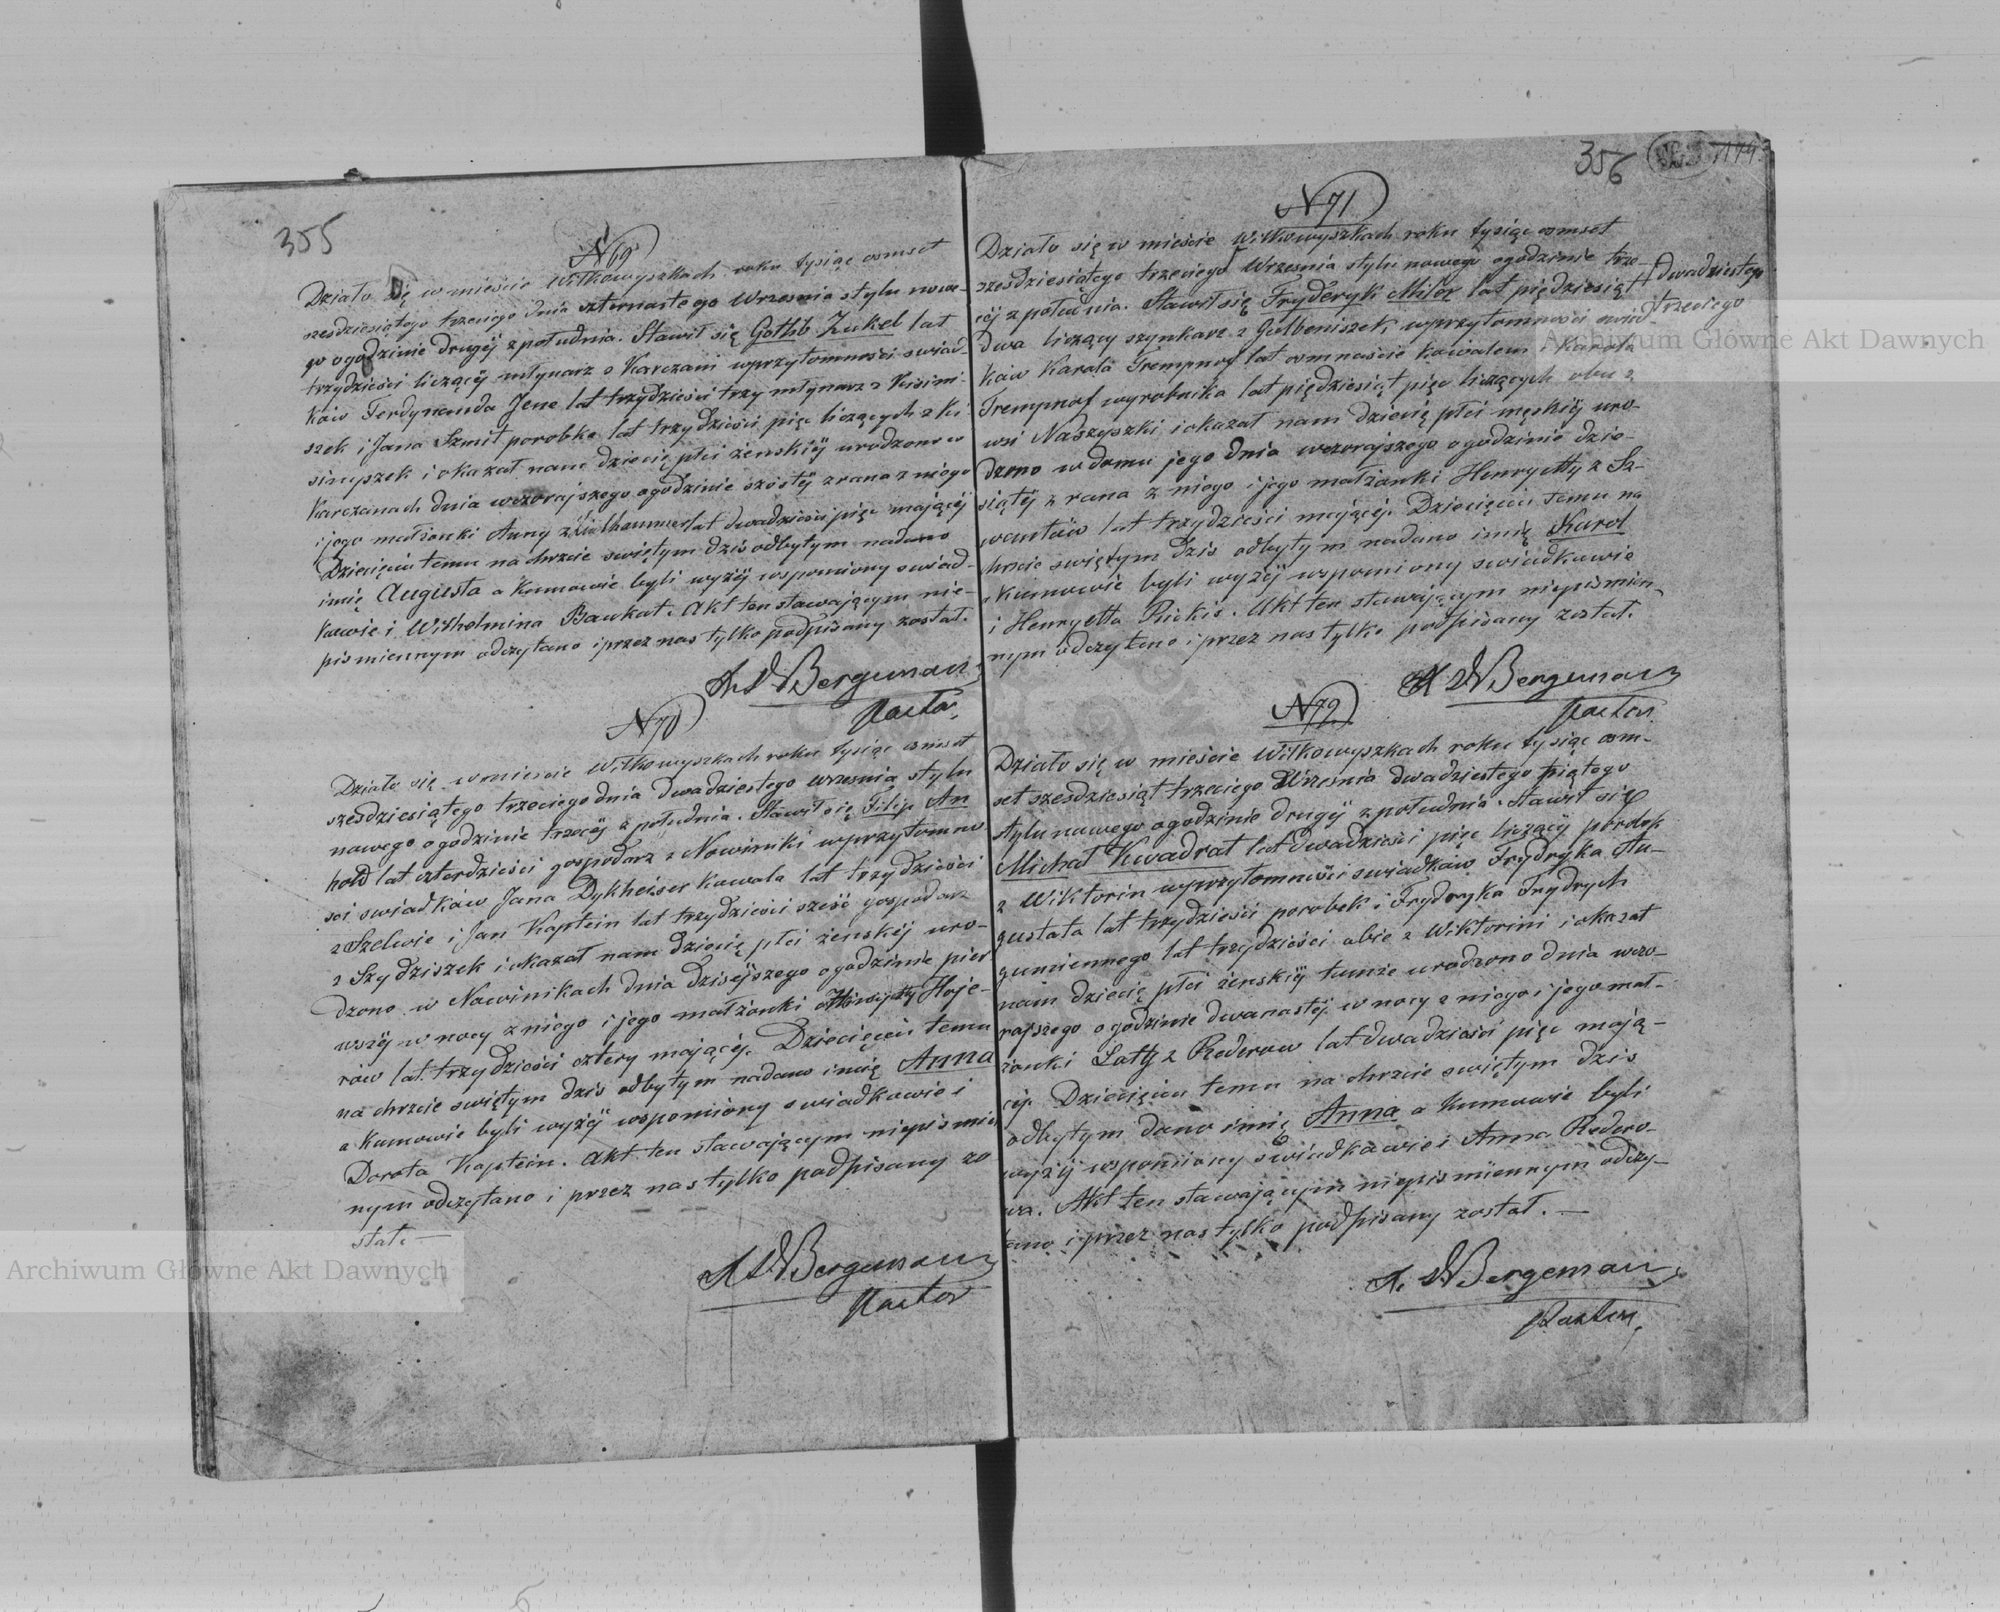 355
N 69
Działo się w mieście Wiłkowyszkach roku tysiąc osmset
szesdziesiątego trzeciego dnia czternartego Wrzesnia stylu nowe-
go ogodzinie drugéj zpołudnia. Stawił się Gotlib Zukel lat
trzydzieści liczący młynarz z Karczani wprzytomności swiad-
ków Ferdynanda Jene lat trzydzieści trzy młynarz z Kisimi-
szek i Jana Szmit porobka lat trzydzieści pięc liczących z Ki-
siniszek i okazał nam dziecię płci żenskiéj urodzone w
Karczanach dnia wczorajszego ogodzinie szóstéj zrana z niego
i jego małżonki Anny z lat dwadzieścia pięc mającéj
Dziecięciu temu na chrzcie swiętym dziś odbytym nadano
imię Augusta a Kumowie byli wyżéj wspomiony swiad-
kowie i Wilhelmina Baukat. Akt ten stawającym nie-
pismiennym odczytano i przez nas tylko podpisany został.
A. W Bergeman
Pastor
N 70
Działo się w miescie Wiłkowyszkach roku tysiąc osmset
szesdziesiątego trzeciego dnia dwadziestego wrzesnia stylu
nowego ogodzinie trzecéj z południa. Stawił się Filip An
hold lat czterdzieści gospodarz z Nowiniki wprzytomno
sci swiadków Jana Dykheiser kowala lat trzydzieści
z Szelwie i Jan Kaptein lat trzydzieści sześć gospodarz
z Szydziszek i okazał nam dziecię płci żenskiéj uro-
dzono w Nowinikach dnia dziséjszego ogodzinie pier
wszéj w nocy z niego i jego małżonki Hoje-
rów lat trzydzieści cztery mającéj. Dziecięciu temu
na chrzcie swiętym dziś odbytym nadano imię Anna
a Kumowie byli wyżéj wspomiony swiadkowie i
Dorota Kaptein. Akt ten stawającym niepismien
nym odczytano i przez nas tylko podpisany zo
stał. —
A W Bergeman
Pastor
356
N 71
Działo się w mieście Wiłkowyszkach roku tysiąc osmset
szesdziesiątego trzeciego Wrzesnia stylu nowego ogodzinie trze-
céj z południa. Stawił się Fryderyk Miler lat piędziesiąt
dwa liczący szynkarz z Gulbeniszek, wprzytomności swiad-
ków Karola Trempnaf lat osmnaście kowalem i Karola
Trempnaf wyrobnika lat piędziesiąt pięc liczących obu z
wsi Naszyszki i okazał nam dziecię płci męskiéj uro-
dzono w domu jego dnia wczorajszego ogodzinie dzie-
siątéj z rana z niego i jego małżonki Henryetty z Sz-
wantów lat trzydzieści mającéj. Dziecięciu temu na
chrzcie swiętym dzis odbytym nadano imię Karol
a Kumowie byli wyżéj wspomniony swiadkowie
i Henryetta Puckie. Akt ten stawającym niepismien-
nym odczytano i przez nas tylko podpisany został.
dwadziestego
trzeciego
A W Bergeman
Pastor
N 72
Działo się w mieście Wiłkowyszkach roku tysiąc osm-
set szesdziesiąt trzeciego Wrzesnia dwadziestego piątego
stylu nowego ogodzinie drugéj z południa. Stawił się
Michał Kwadrat lat dwadzieści pięc liczący porobek
z Wiktorin wprzytomności swiadków Frydryka Au-
gustata lat trzydzieści porobek i Frydryka Frydrych
gumiennego lat trzydzieści obie z Wiktorini i okazał
nam dziecię płci żenskiéj tamże urodzono dnia wczo-
rajszego ogodzinie dwanastéj w nocy z niego i jego mał-
żonki Lotty z Rederow lat dwadzieści pięc mają-
céj. Dziecięciu temu na chrzcie swiętym dzis
odbytym dano imię Anna a Kumowie byli
wyżéj wspomiony swiadkowie i Anna Redero-
wa. Akt ten stawającym niepismiennym odczy-
tano i przez nas tylko podpisany został. —
A. W Bergeman
Pastor
Archiwum Główne Akt Dawnych
Archiwum Główne Akt Dawnych